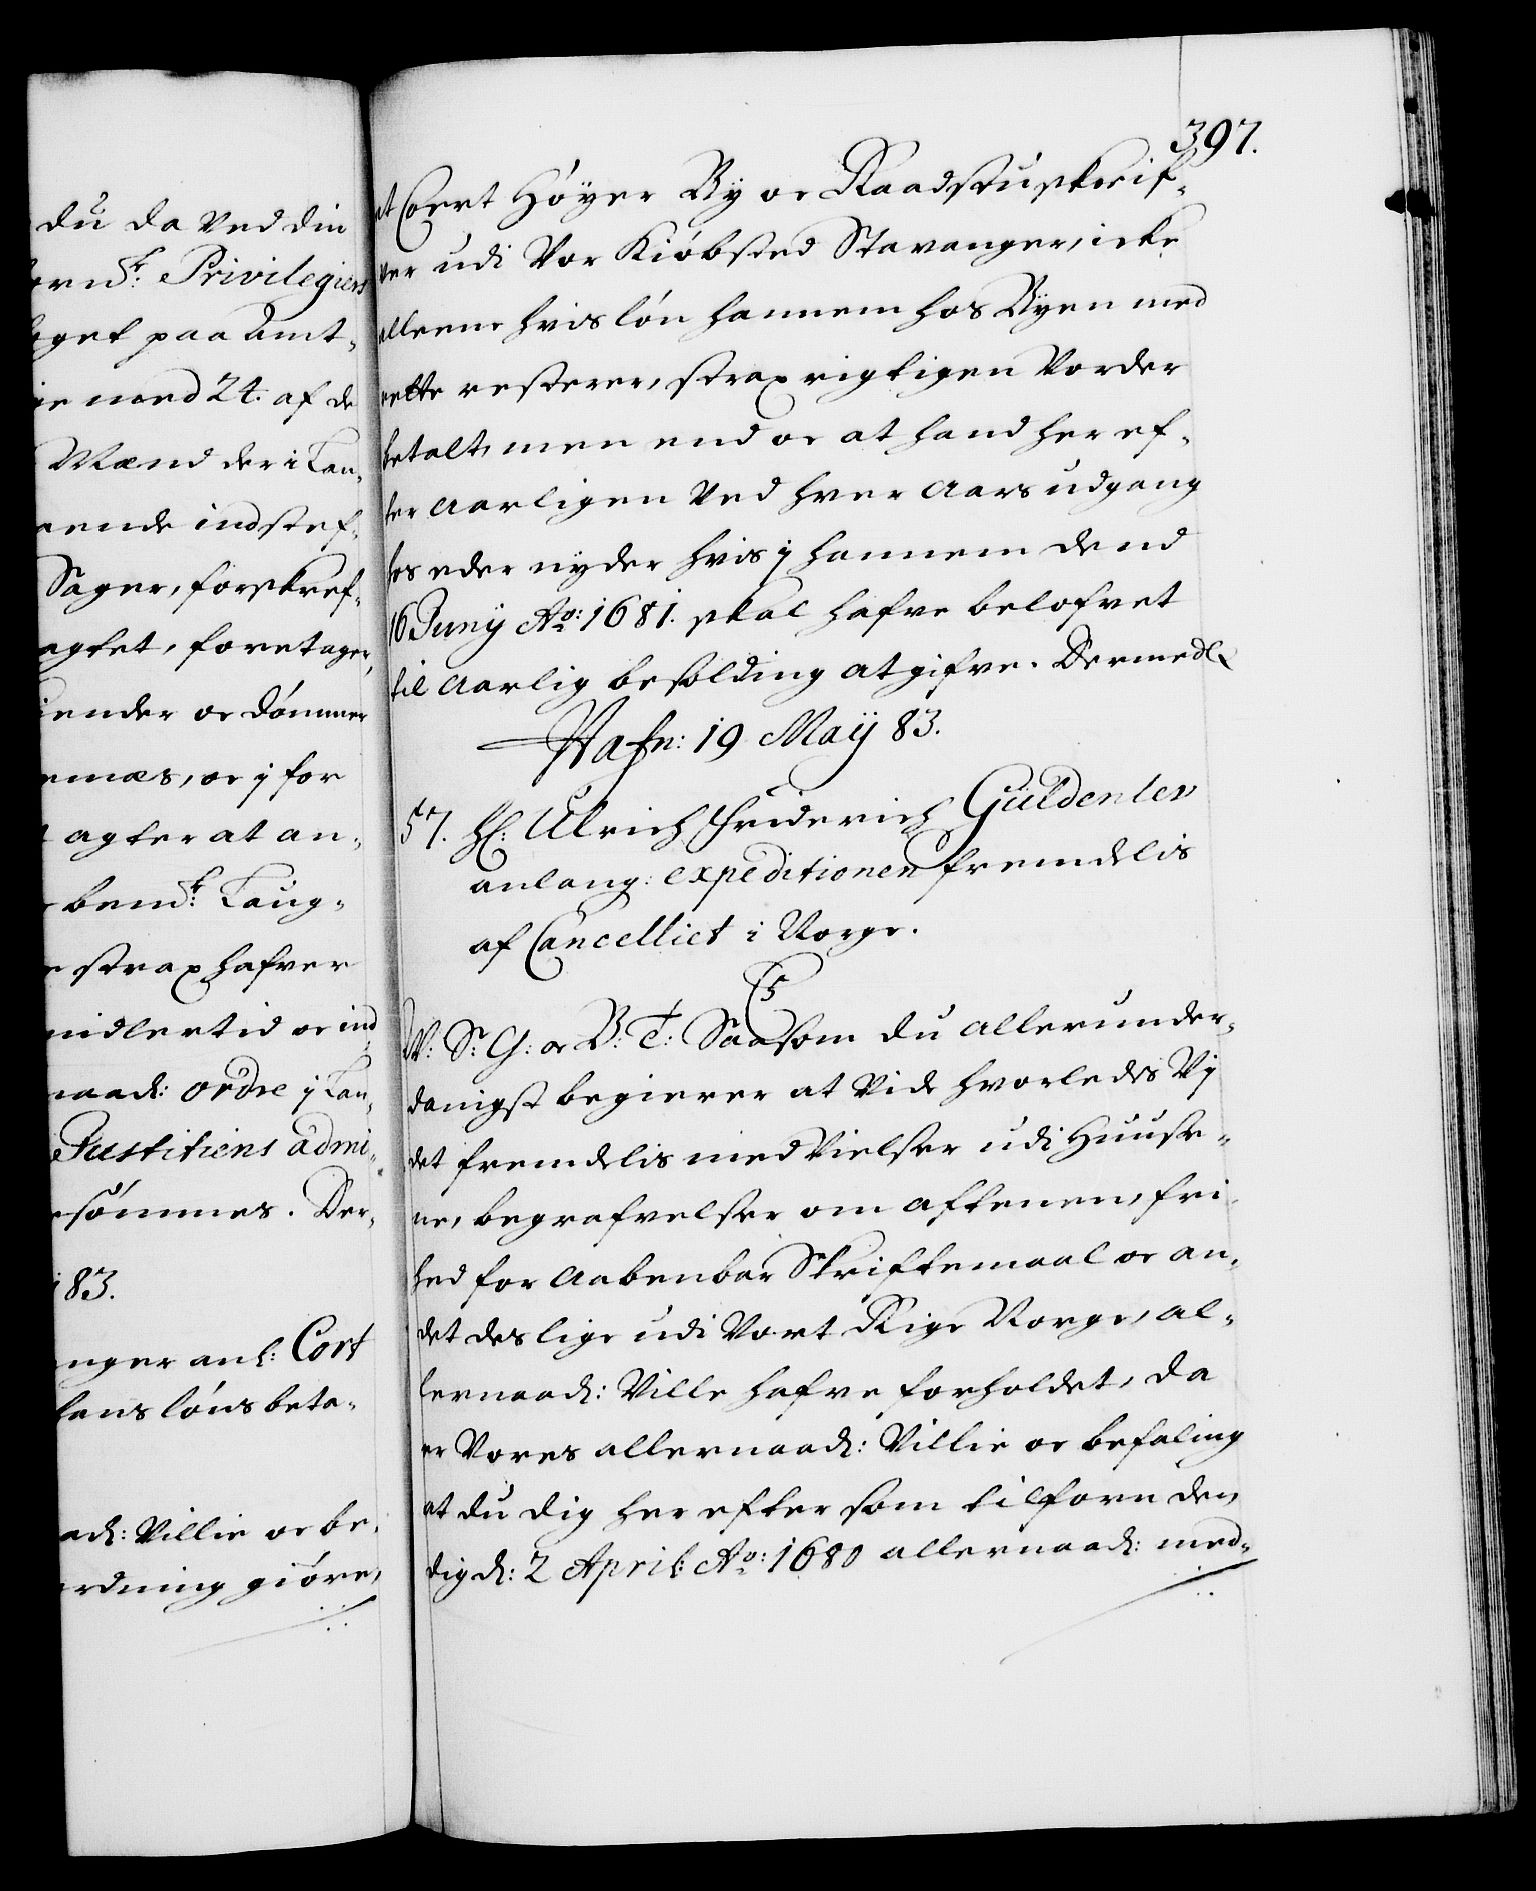 du da ved din
bem.te Privilegiers
aget paa Amt-
ie med 24. af de
Mænd der i Lau-
ende indstef-
Sager, forskref-
agtet, foretager,
iender oc dømmer
emæs, oc j for
agter at an-
bem.te Laug-
strax hafver
midlertid oc ind
naad: ordre j Lau-
Justitiens admi-
sømmes. Der-
83.
anger anl: Cort
hans løns beta-
aad: Villie oc be-
ordning giøre,
397.
at Coert Høyer By oc Raadstuskrif-
ver udi Vor Kiøbsted Stavanger, icke
alleene hvis løn hannem hos Byen med
rette resterer, strax rigtigen Vorder
betalt, men end oc at hand her ef-
ter Aarligen Ved hver Aars udgang
hos eder nyder hvis j hannem dend
16 Junij Ao: 1681. skal hafve belofvet
til Aarlig besolding at gifve. Dermed
Hafn: 19 Maij 83.
57. H: Ulrich Friderich Güldenlew
anlang: expeditionen fremdelis
af Cancelliet i Norge.
C5
V: S: G: oc B: T: Saasom du allerunder-
danigst begierer at Vide hvorledis Vj
det fremdelis med Vielser udi Huuse-
ne, begrafvelser om aftenen, fri
hed for Aabenbar Skriftemaal oc an-
det deslige udi Vort Rige Norge, al-
lernaad: Ville hafve forholdet, da
er Vores allernaad: Villie oc befaling
at du dig her efter som tilforn den
dig d: 2 April: Ao: 1680 allernaad: med-